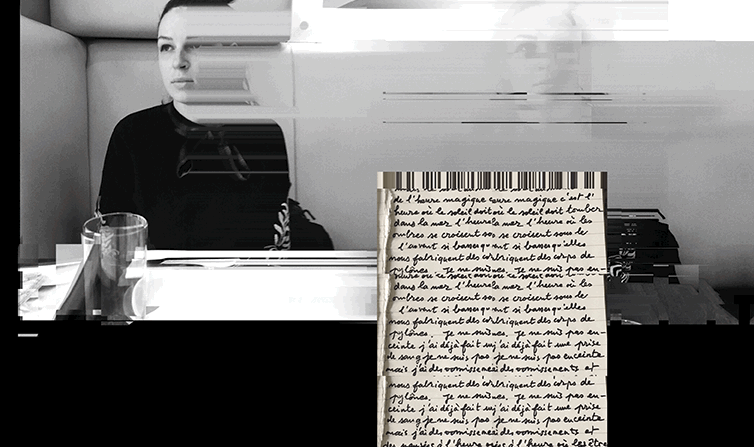 de l'heure magique eure magique c'est l'
heure où le soleil doit où le soleil doit tomber
dans la mer l'heure la mer l'heure où les
ombres se croisent sos se croisent sous le
nous fabriquent des corbriquent des corps de
pylônes. Je ne suis nes. Je ne suis pas en-
dans la mer l'heure la mer l'heure où les
ombres se croisent sos se croisent sous le
nous fabriquent des corbriquent des corps de
pylônes. Je ne suis nes. Je ne suis pas en-
ceinte j'ai déjà fait uj'ai déjà fait une prise
de sang je ne suis pas je ne suis pas enceinte
mais j'ai des vomissemeai des vomissements et
nous fabriquent des corbriquent des corps de
pylônes. Je ne suis nes. Je ne suis pas en-
ceinte j'ai déjà fait uj'ai déjà fait une prise
de sang je ne suis pas je ne suis pas enceinte
mais j'ai des vomissemeai des vomissements et